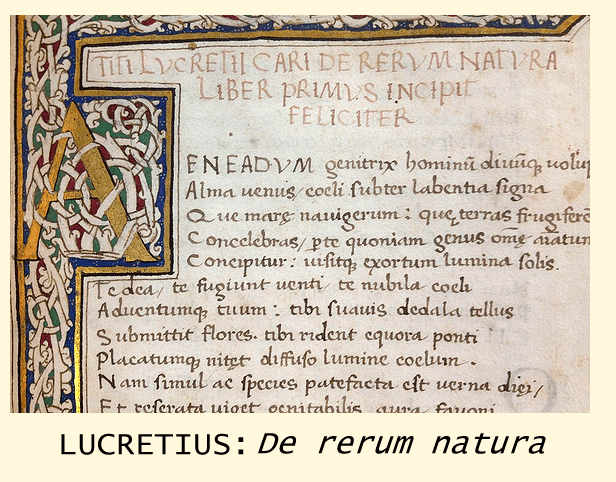 TITI LVCRETII CARI DE RERVM NATVRA
LIBER PRIMVS INCIPIT
FELICITER
AENEADVM genitrix hominū diuūqꝫ volup
Alma venus, coeli subter labentia signa
Que mare nauigerum: que terras frugiferē
Concelebras, ꝑte quoniam genus omē aīatum
Concipitur: uisitqꝫ exortum lumina solis.
Te dea, te fugiunt venti, te nubila coeli
Aduentumqꝫ tuum: tibi suauis dedala tellus
Submittit flores. tibi rident equora ponti
Placatumqꝫ nitet diffuso lumine coelum.
Nam simul ac species patefacta est verna diei,
Et reserata uiget genitabilis aura fauoni
LUCRETIUS: De rerum natura